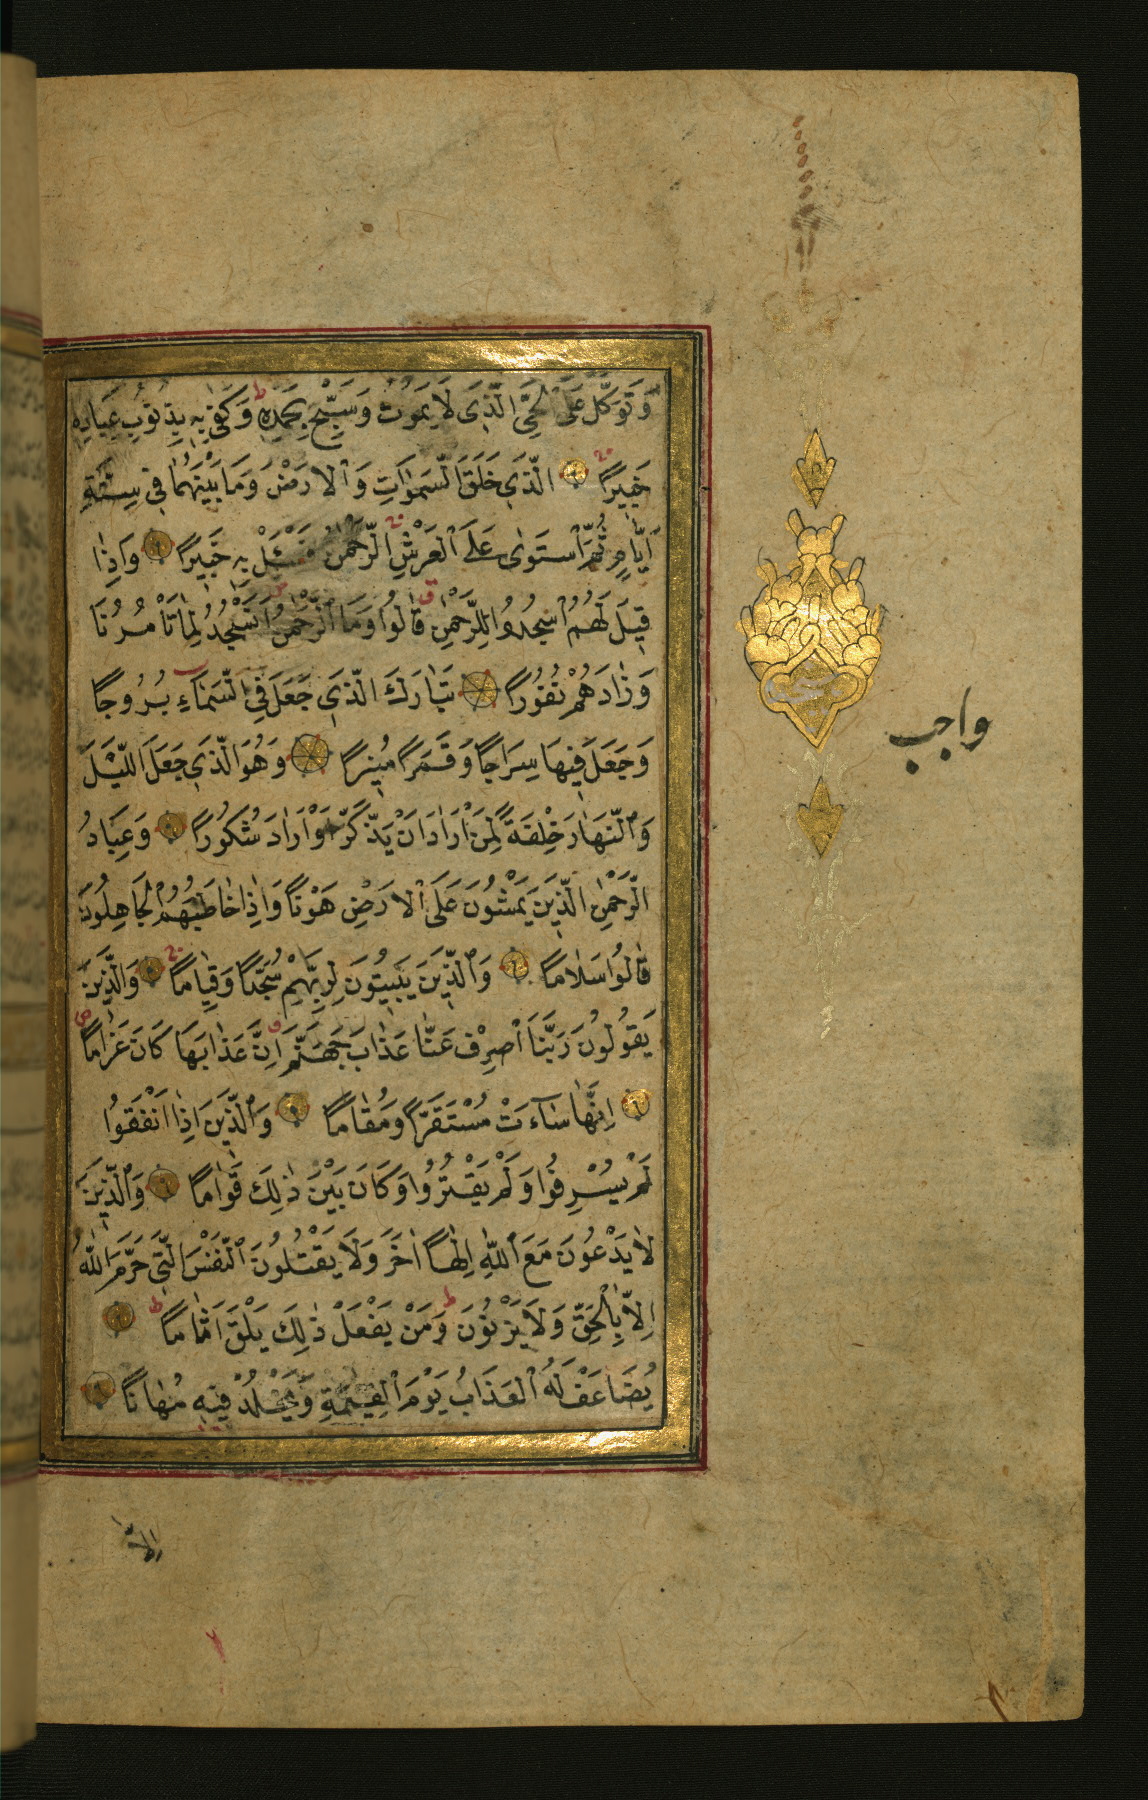 وَتَوَكَّلْ عَلَى الْحَيِّ الَّذِي لَا يَمُوتُ وَسَبِّحْ بِحَمْدِهِ ط وَكَفَى بِهِ بِذُنُوبِ عِبَادِهِ
خَبِيرًا الَّذِي خَلَقَ السَّمٰوَاتِ وَالْاَرْضَ وَمَا بَيْنَهُمَا فِي سِتَّةِ
اَيَّامٍ ثُمَّ اسْتَوٰى عَلَى الْعَرْشِ الرَّحْمٰنُ فَسْئَلْ بِهِ خَبِيرًا وَاِذَا
قِيلَ لَهُمُ اسْجُدُوا لِلرَّحْمٰنِ قَالُوا وَمَا الرَّحْمٰنُ اَنَسْجُدُ لِمَا تَأْمُرُنَا
وَزَادَهُمْ نُفُورًا تَبَارَكَ الَّذِي جَعَلَ فِي السَّمَاءِ بُرُوجًا
وَجَعَلَ فِيهَا سِرَاجًا وَقَمَرًا مُنِيرًا وَهُوَ الَّذِي جَعَلَ اللَّيْلَ
وَالنَّهَارَ خِلْفَةً لِمَنْ اَرَادَ اَنْ يَذَّكَّرَ اَوْ اَرَادَ شُكُورًا وَعِبَادُ
الرَّحْمٰنِ الَّذِينَ يَمْشُونَ عَلَى الْاَرْضِ هَوْنًا وَاِذَا خَاطَبَهُمُ الْجَاهِلُونَ
قَالُوا سَلَامًا وَالَّذِينَ يَبِيتُونَ لِرَبِّهِمْ سُجَّدًا وَقِيَامًا وَالَّذِينَ
يَقُولُونَ رَبَّنَا اصْرِفْ عَنَّا عَذَابَ جَهَنَّمَ اِنَّ عَذَابَهَا كَانَ غَرَامًا
اِنَّهَا سَاءَتْ مُسْتَقَرًّا وَمُقَامًا وَالَّذِينَ اِذَا اَنْفَقُوا
لَمْ يُسْرِفُوا وَلَمْ يَقْتُرُوا وَكَانَ بَيْنَ ذٰلِكَ قَوَامًا وَالَّذِينَ
لَا يَدْعُونَ مَعَ اللّٰهِ اِلٰهًا اٰخَرَ وَلَا يَقْتُلُونَ النَّفْسَ الَّتِي حَرَّمَ اللّٰهُ
اِلَّا بِالْحَقِّ وَلَا يَزْنُونَ ط وَمَنْ يَفْعَلْ ذٰلِكَ يَلْقَ اَثَامًا ط
يُضَاعَفْ لَهُ الْعَذَابُ يَوْمَ الْقِيٰمَةِ وَيَخْلُدْ فِيهِ مُهَانًا
اِلَّا
واجب